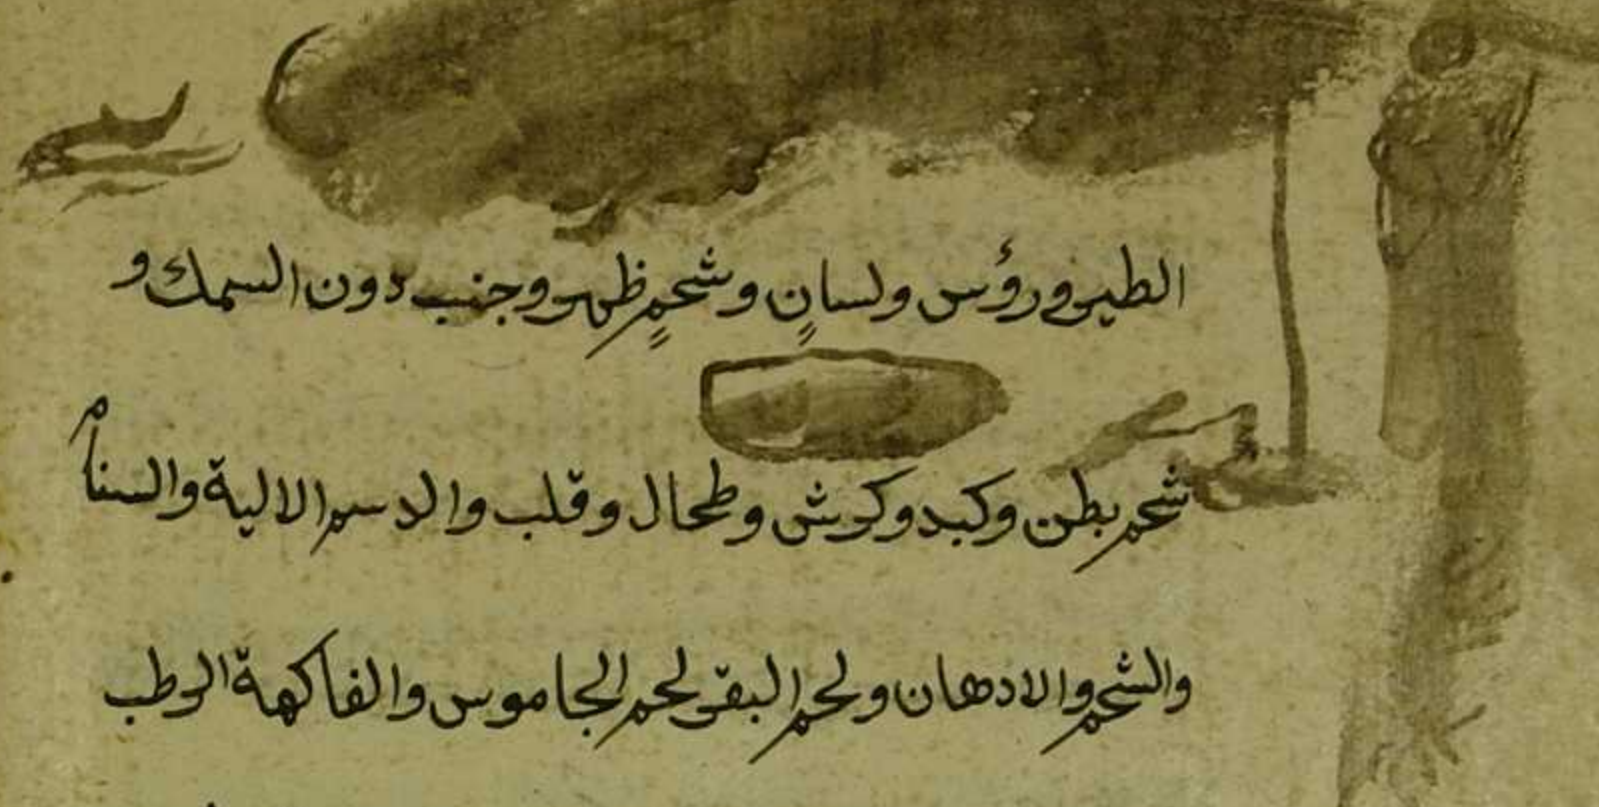 الطير ورؤس ولسانٍ وشحمٍ ظهر وجنب دون السمك و
شحم بطن وكبد وكرش وطحال وقلب والدسم الالية والسنام
والشحم والادهان ولحم البقر لحم الجاموس والفاكهة الرطب